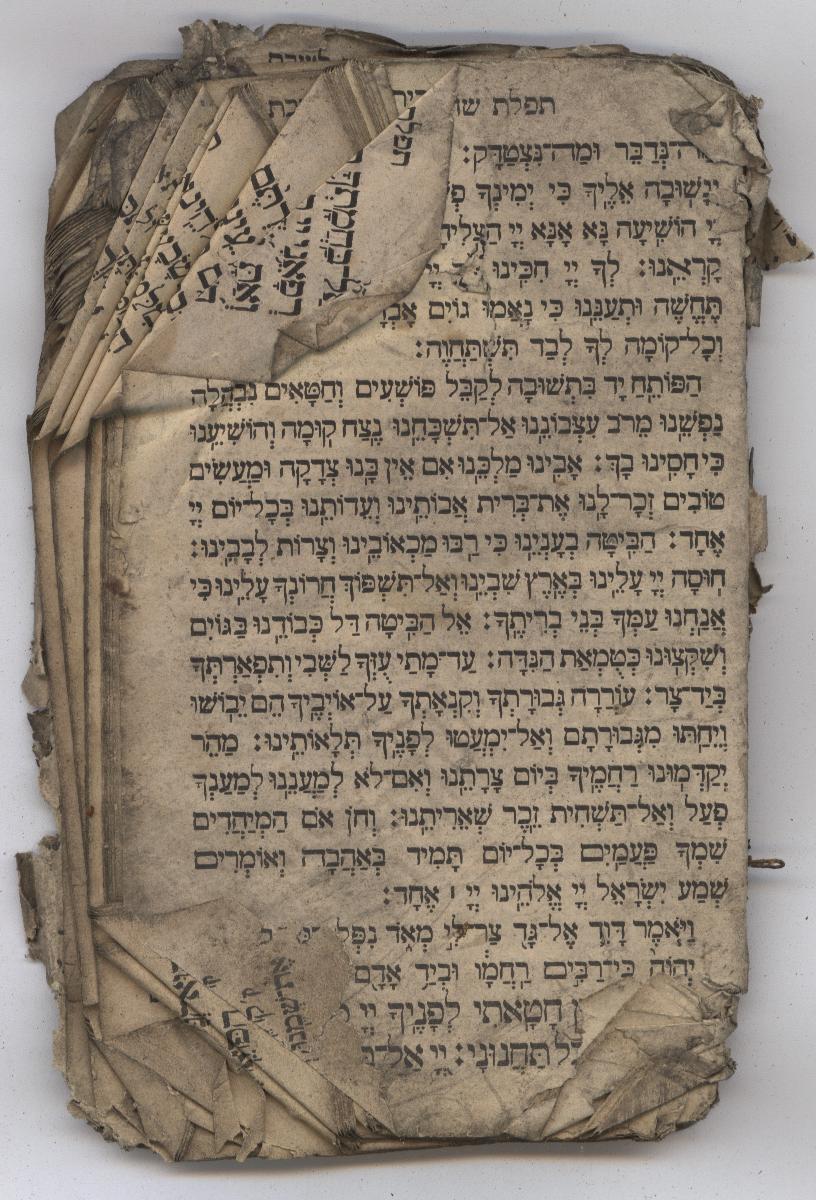 תפלת
וּמַה־נִּצְטַדָּק:
וְנָשׁוּבָה אֵלֶיךָ כִּי יְמִינְךָ
הוֹשִׁיעָה נָּא אָנָּא יְיָ הַצְלִיחָה
קָרְאֵנוּ: לְךָ יְיָ חִכִּינוּ יְיָ
תֶּחֱשֶׁה וּתְעַנֵּנוּ כִּי נָאֲמוּ גוֹיִם
וְכָל־קוֹמָה לְךָ לְבַד תִּשְׁתַּחֲוֶה:
הַפּוֹתֵחַ יָד בִּתְשׁוּבָה לְקַבֵּל פּוֹשְׁעִים וְחַטָּאִים נִבְהֲלָה
נַפְשֵׁנוּ מֵרֹב עִצְּבוֹנֵנוּ אַל־תִּשְׁכָּחֵנוּ נֶצַח קוּמָה וְהוֹשִׁיעֵנוּ
כִּי חָסִינוּ בָךְ: אָבִינוּ מַלְכֵּנוּ אִם אֵין בָּנוּ צְדָקָה וּמַעֲשִׂים
טוֹבִים זְכָר־לָנוּ אֶת־בְּרִית אֲבוֹתֵינוּ וְעֵדוֹתֵנוּ בְּכָל־יוֹם יְיָ
אֶחָד: הַבִּיטָה בְעָנְיֵנוּ כִּי רַבּוּ מַכְאוֹבֵינוּ וְצָרוֹת לְבָבֵינוּ:
חוּסָה יְיָ עָלֵינוּ בְּאֶרֶץ שִׁבְיֵנוּ וְאַל־תִּשְׁפּוֹךְ חֲרוֹנְךָ עָלֵינוּ כִּי
אֲנַחְנוּ עַמְּךָ בְּנֵי בְרִיתֶךָ: אֵל הַבִּיטָה דַּל כְּבוֹדֵנוּ בַּגּוֹיִם
וְשִׁקְּצוּנוּ כְּטֻמְאַת הַנִּדָּה: עַד־מָתַי עֻזְּךָ לַשְּׁבִי וְתִפְאַרְתְּךָ
בְּיַד־צָר: עוֹרְרָה גְּבוּרָתְךָ וְקִנְאָתְךָ עַל־אוֹיְבֶיךָ הֵם יֵבוֹשׁוּ
וְיֵחַתּוּ מִגְּבוּרָתָם וְאַל־יִמְעֲטוּ לְפָנֶיךָ תְּלָאוֹתֵינוּ: מַהֵר
יְקַדְּמוּנוּ רַחֲמֶיךָ בְּיוֹם צָרָתֵנוּ וְאִם־לֹא לְמַעֲנֵנוּ לְמַעַנְךָ
פְעַל וְאַל־תַּשְׁחִית זֵכֶר שְׁאֵרִיתֵנוּ: וְחֹן אֹם הַמְיַחֲדִים
שִׁמְךָ פַּעֲמַיִם בְּכָל־יוֹם תָּמִיד בְּאַהֲבָה וְאוֹמְרִים
שְׁמַע יִשְׂרָאֵל יְיָ אֱלֹהֵינוּ יְיָ ׀ אֶחָד:
וַיֹּאמֶר דָּוִד אֶל־גָּד צַר־לִי מְאֹד
יְהוָֹה כִּי־רַבִּים רַחֲמָו וּבְיַד אָדָם
חָטָאתִי לְפָנֶיךָ יְיָ
תַּחֲנוּנָי: יְיָ